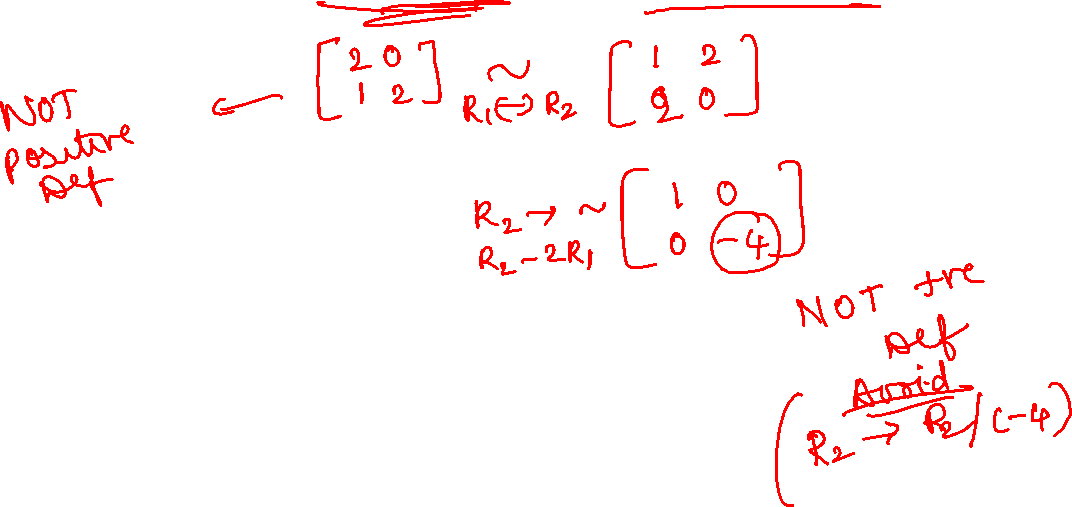 NOT positive Def ← [2 0; 1 2] ~ R₁↔R₂ [1 2; 2 0]
R₂ → R₂-2R₁ ~ [1 0; 0 -4]
NOT +ve Def
Avoid
(R₂ → R₂/(-4)